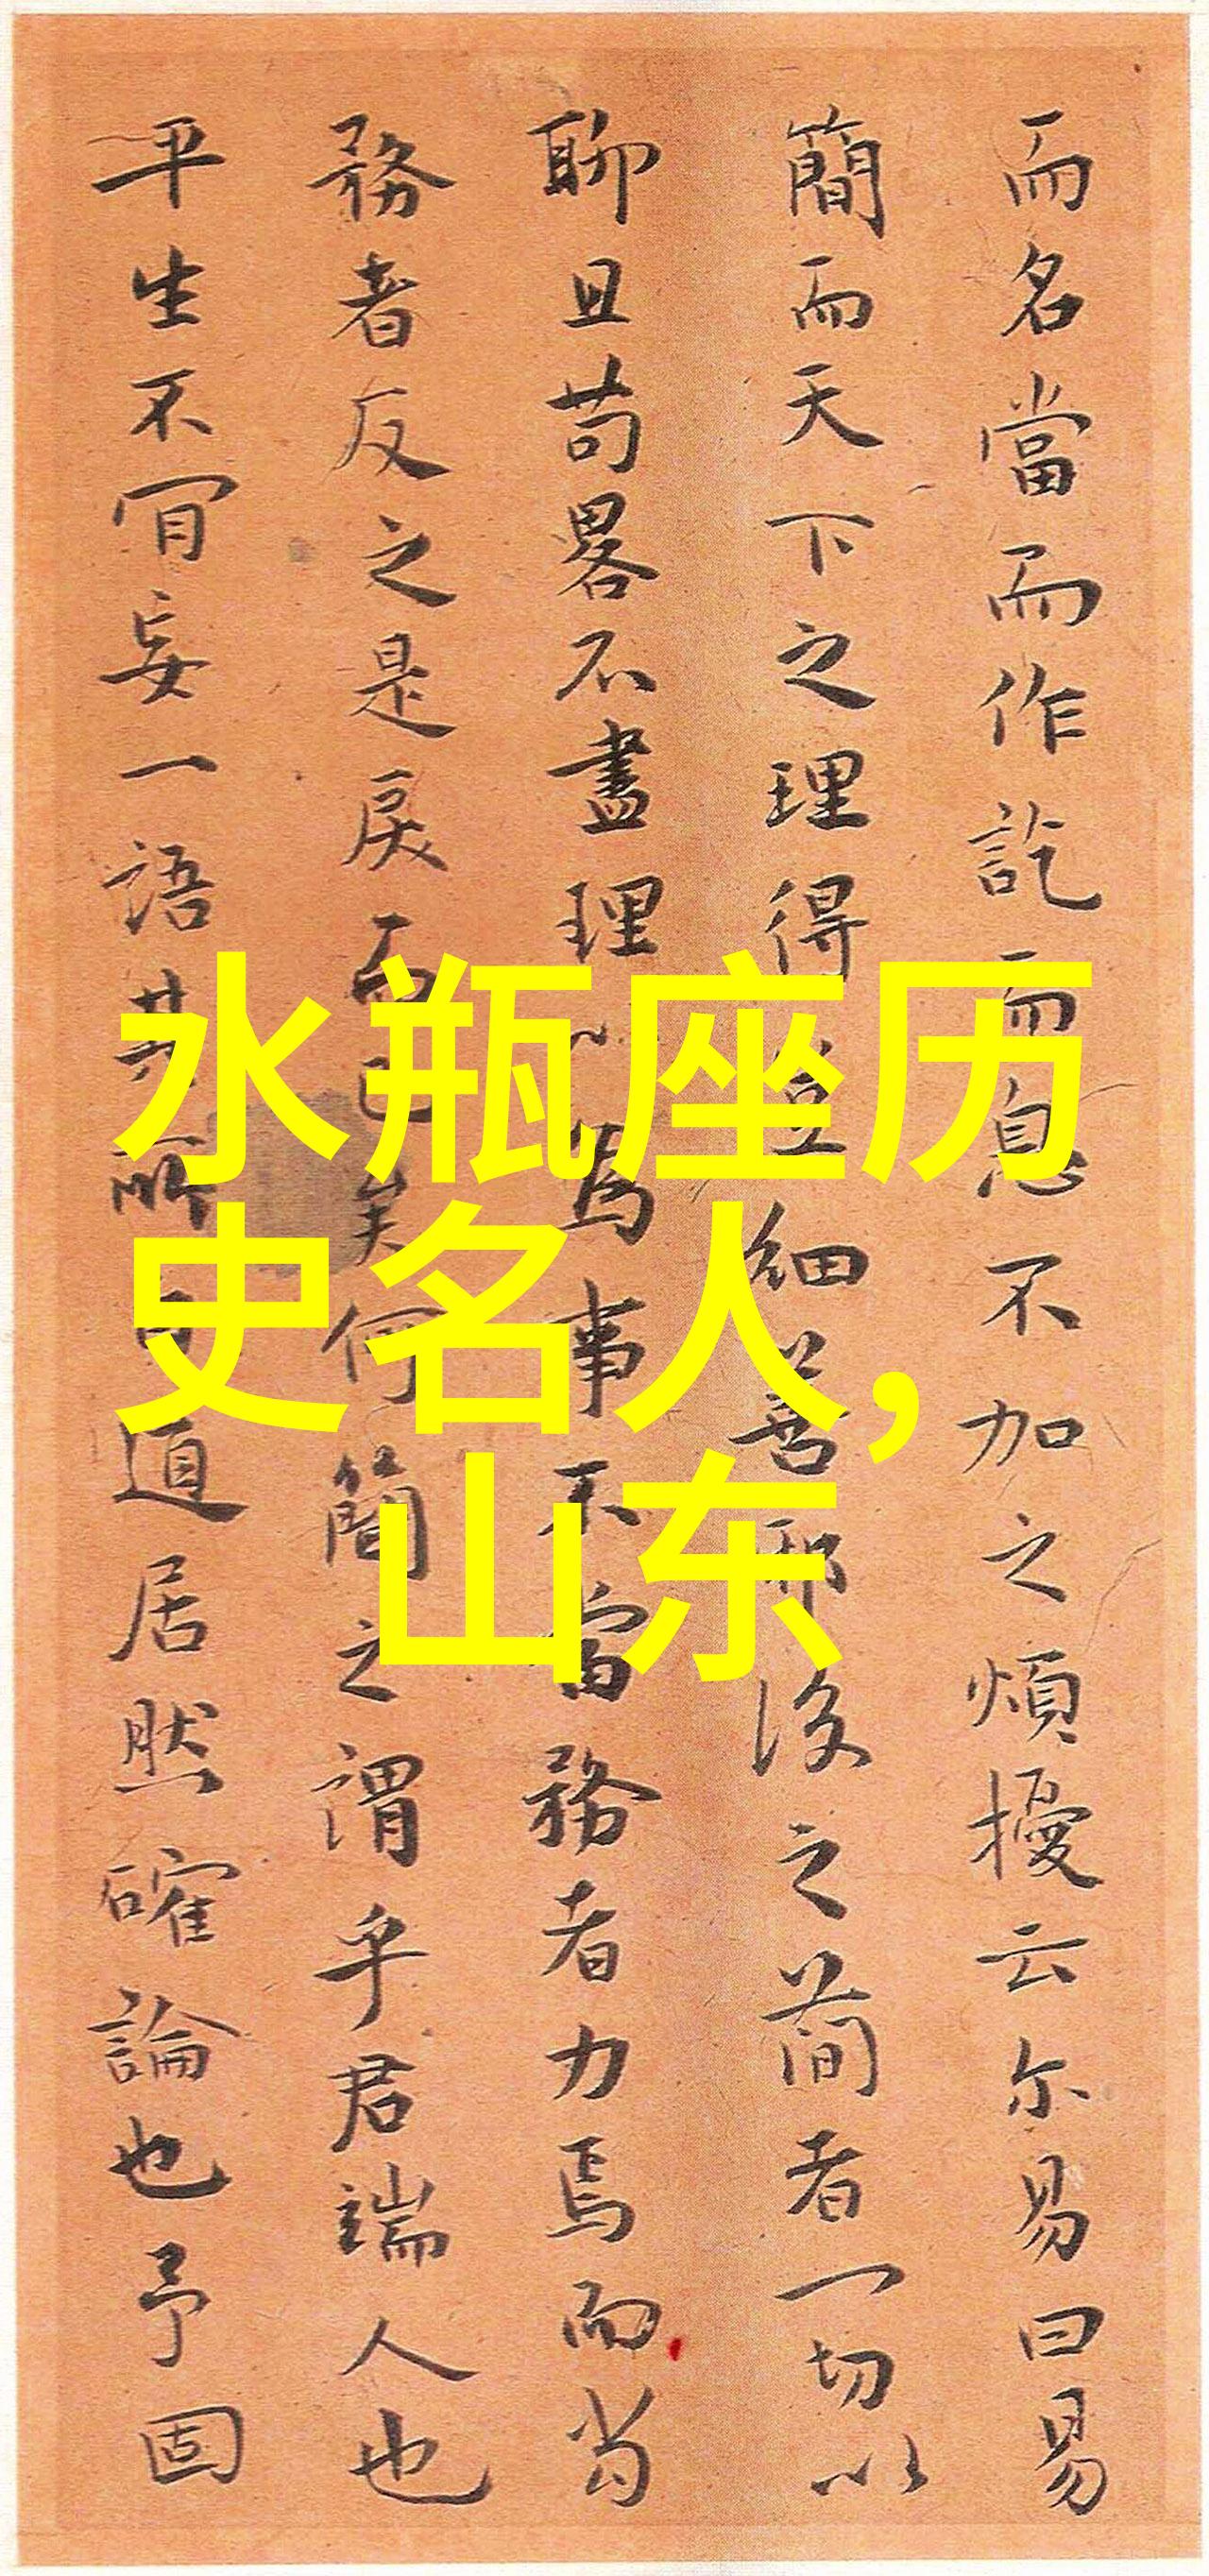 而名當而作訖而息不加之煩擾云尔易曰易
簡而天下之理得 細善 後之簡者一切以
聊且苟畧不盡理 為事不當務者力焉而当
務者反之是戾而已矣何簡之謂乎君端人也
平生不肎妄一語其所 道居然確論也予固
水瓶座历
史名人,
山东